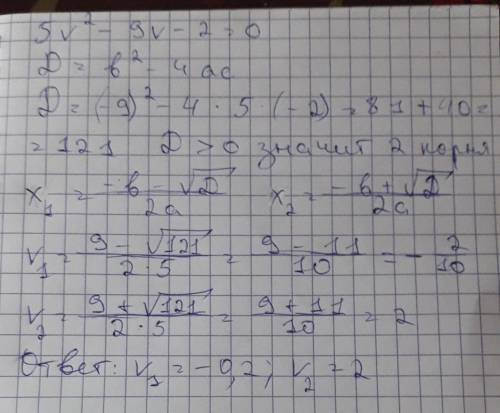 5v² - 9v - 2 = 0
D = b² - 4ac
D = (-9)² - 4 · 5 · (-2) = 81 + 40 =
= 121 D > 0 значит 2 корня
x₁ = (-b - √D)/2a x₂ = (-b + √D)/2a
v₁ = (9 - √121)/(2·5) = (9 - 11)/10 = - 2/10
v₂ = (9 + √121)/(2·5) = (9 + 11)/10 = 2
Ответ: v₁ = -0,2; v₂ = 2